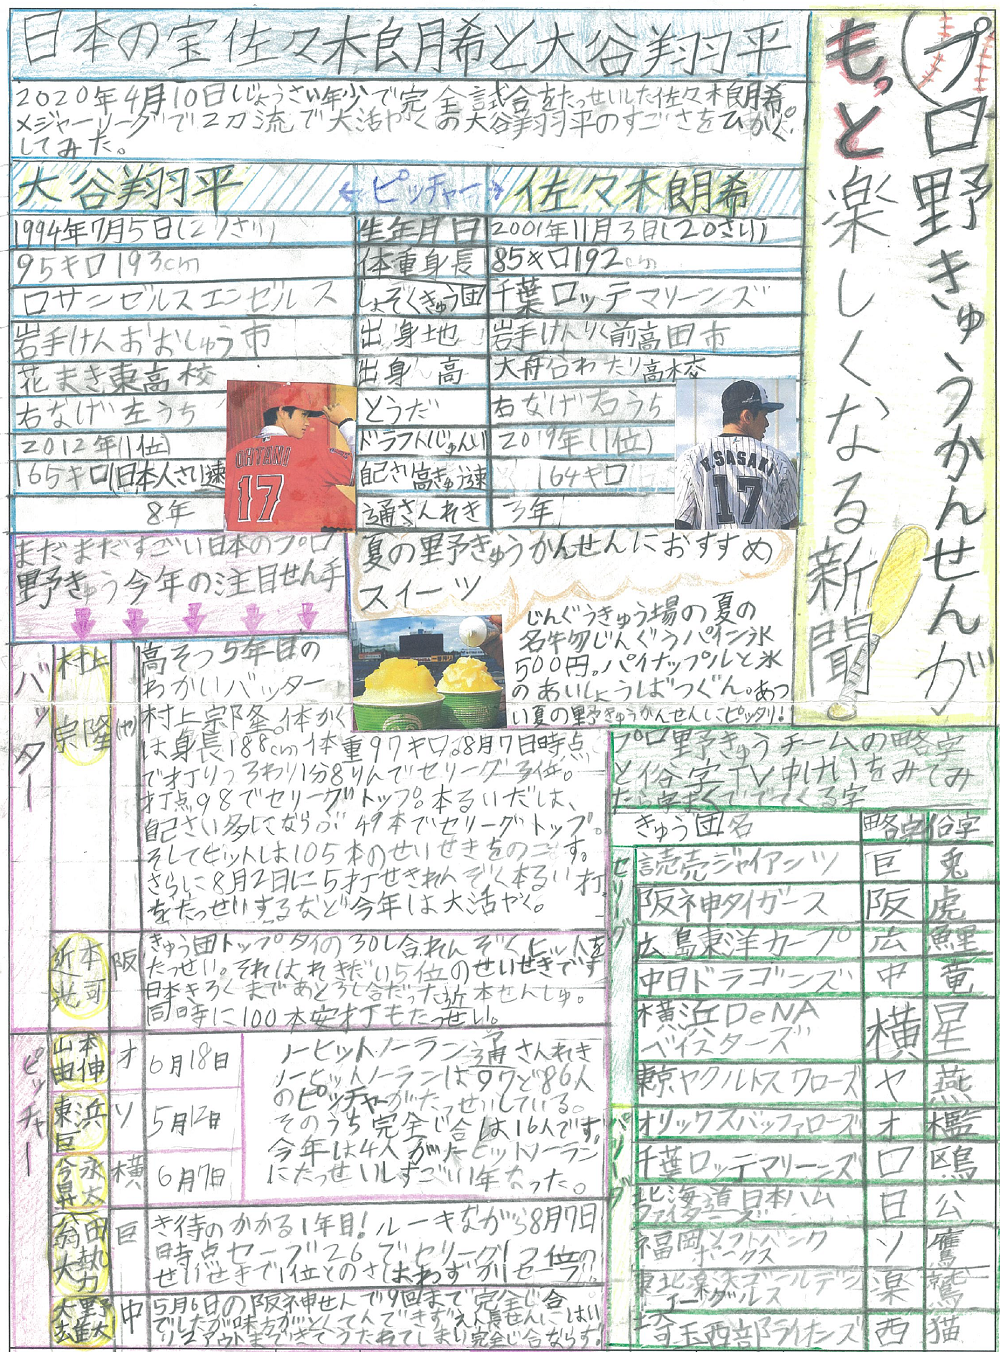 プロ野きゅうかんせんが
もっと楽しくなる新聞
日本の宝佐々木良月希と大谷翔平
2020年4月10日しじょうさい年少で完全試合をたっせいした佐々木良月希。
メジャーリーグで2刀流で大活やくの大谷翔平のすごさをひかく
してみた。
大谷翔平 ←ピッチャー→ 佐々木朗希
1994年7月5日(27さい) 生年月日 2001年11月3日(20さい)
95キロ193cm 体重身長 85キロ192cm
ロサンゼルスエンゼルス しょぞくきゅう団 千葉ロッテマリーンズ
岩手けんおおしゅう市 出身地 岩手けんりく前高田市
花まき東高校 出身高 大舟谷わたり高校
右なげ左うち とうだ 右なげ右うち
2012年(1位) ドラフト(じゅんい) 2019年(1位)
165キロ(日本人さい速 自己さい高きゅう速 164キロ
8年 通さんれき 3年
OHTANI
17
R.SASAKI
17
まだまだすごい日本のプロ
野きゅう今年の注目せん手
夏の野きゅうかんせんにおすすめ
スイーツ
じんぐうきゅう場の夏の
名物じんぐうパイン氷
500円。パイナップルと氷
のあいしょうばつぐん。あつ
い夏の野きゅうかんせんにピッタリ!
バッター
村上宗隆(ヤ)
高そつ5年目の
わかいバッター
村上宗隆。体かく
は身長188cm体重97キロ。8月7日時点
で打りつ3わり1分8りんでセリーグ3位。
打点98でセリーグトップ。本るいだは、
自己さい多にならぶ49本でセリーグトップ。
そしてヒットは105本のせいせきをのこす。
さらに8月2日に5打せきれんぞく本るい打
をたっせいするなど今年は大活やく。
近本光司 阪
きゅう団トップタイの30し合れんぞくヒットを
たっせい。それはれきだい5位のせいせきです
日本きろくまであと3し合だった近本せんしゅ。
同時に100本安打もたっせい。
ピッチャー
山本由伸 オ 6月18日
東浜巨 ソ 5月12日
今永昇太 横 6月7日
ノーヒットノーラン通さんれき
ノーヒットノーランは97ど86人
のピッチャーがたっせいしている。
そのうち完全じ合は16人です。
今年は4人がノーヒットノーラン
にたっせいしすごい1年なった。
翁田大勢 巨
き待のかかる1年目!ルーキながら8月7日
時点セーブ26でセリーグ2位の
せいせきで1位とのさはわずか1セーブ!
大野雄大 中
5月6日の阪神せんで9回まで完全じ合
でしたが味方がとくてんできずえん長せんにはい
り2アウトまできてうたれてしまい完全じ合ならず!
プロ野きゅうチームの略字
と俗字TV中けいをみてみ
たら字まくででてくる字
きゅう団名 略字 俗字
セリーグ
読売ジャイアンツ 巨 兎
阪神タイガース 阪 虎
広島東洋カープ 広 鯉
中日ドラゴンズ 中 竜
横浜DeNA
ベイスターズ 横 星
東京ヤクルトスワローズ ヤ 燕
パリーグ
オリックスバッファローズ オ 檻
千葉ロッテマリーンズ ロ 鴎
北海道日本ハム
ファイターズ 日 公
福岡ソフトバンク
ホークス ソ 鷹
東北楽天ゴールデン
イーグルス 楽 鷲
埼玉西部ライオンズ 西 猫